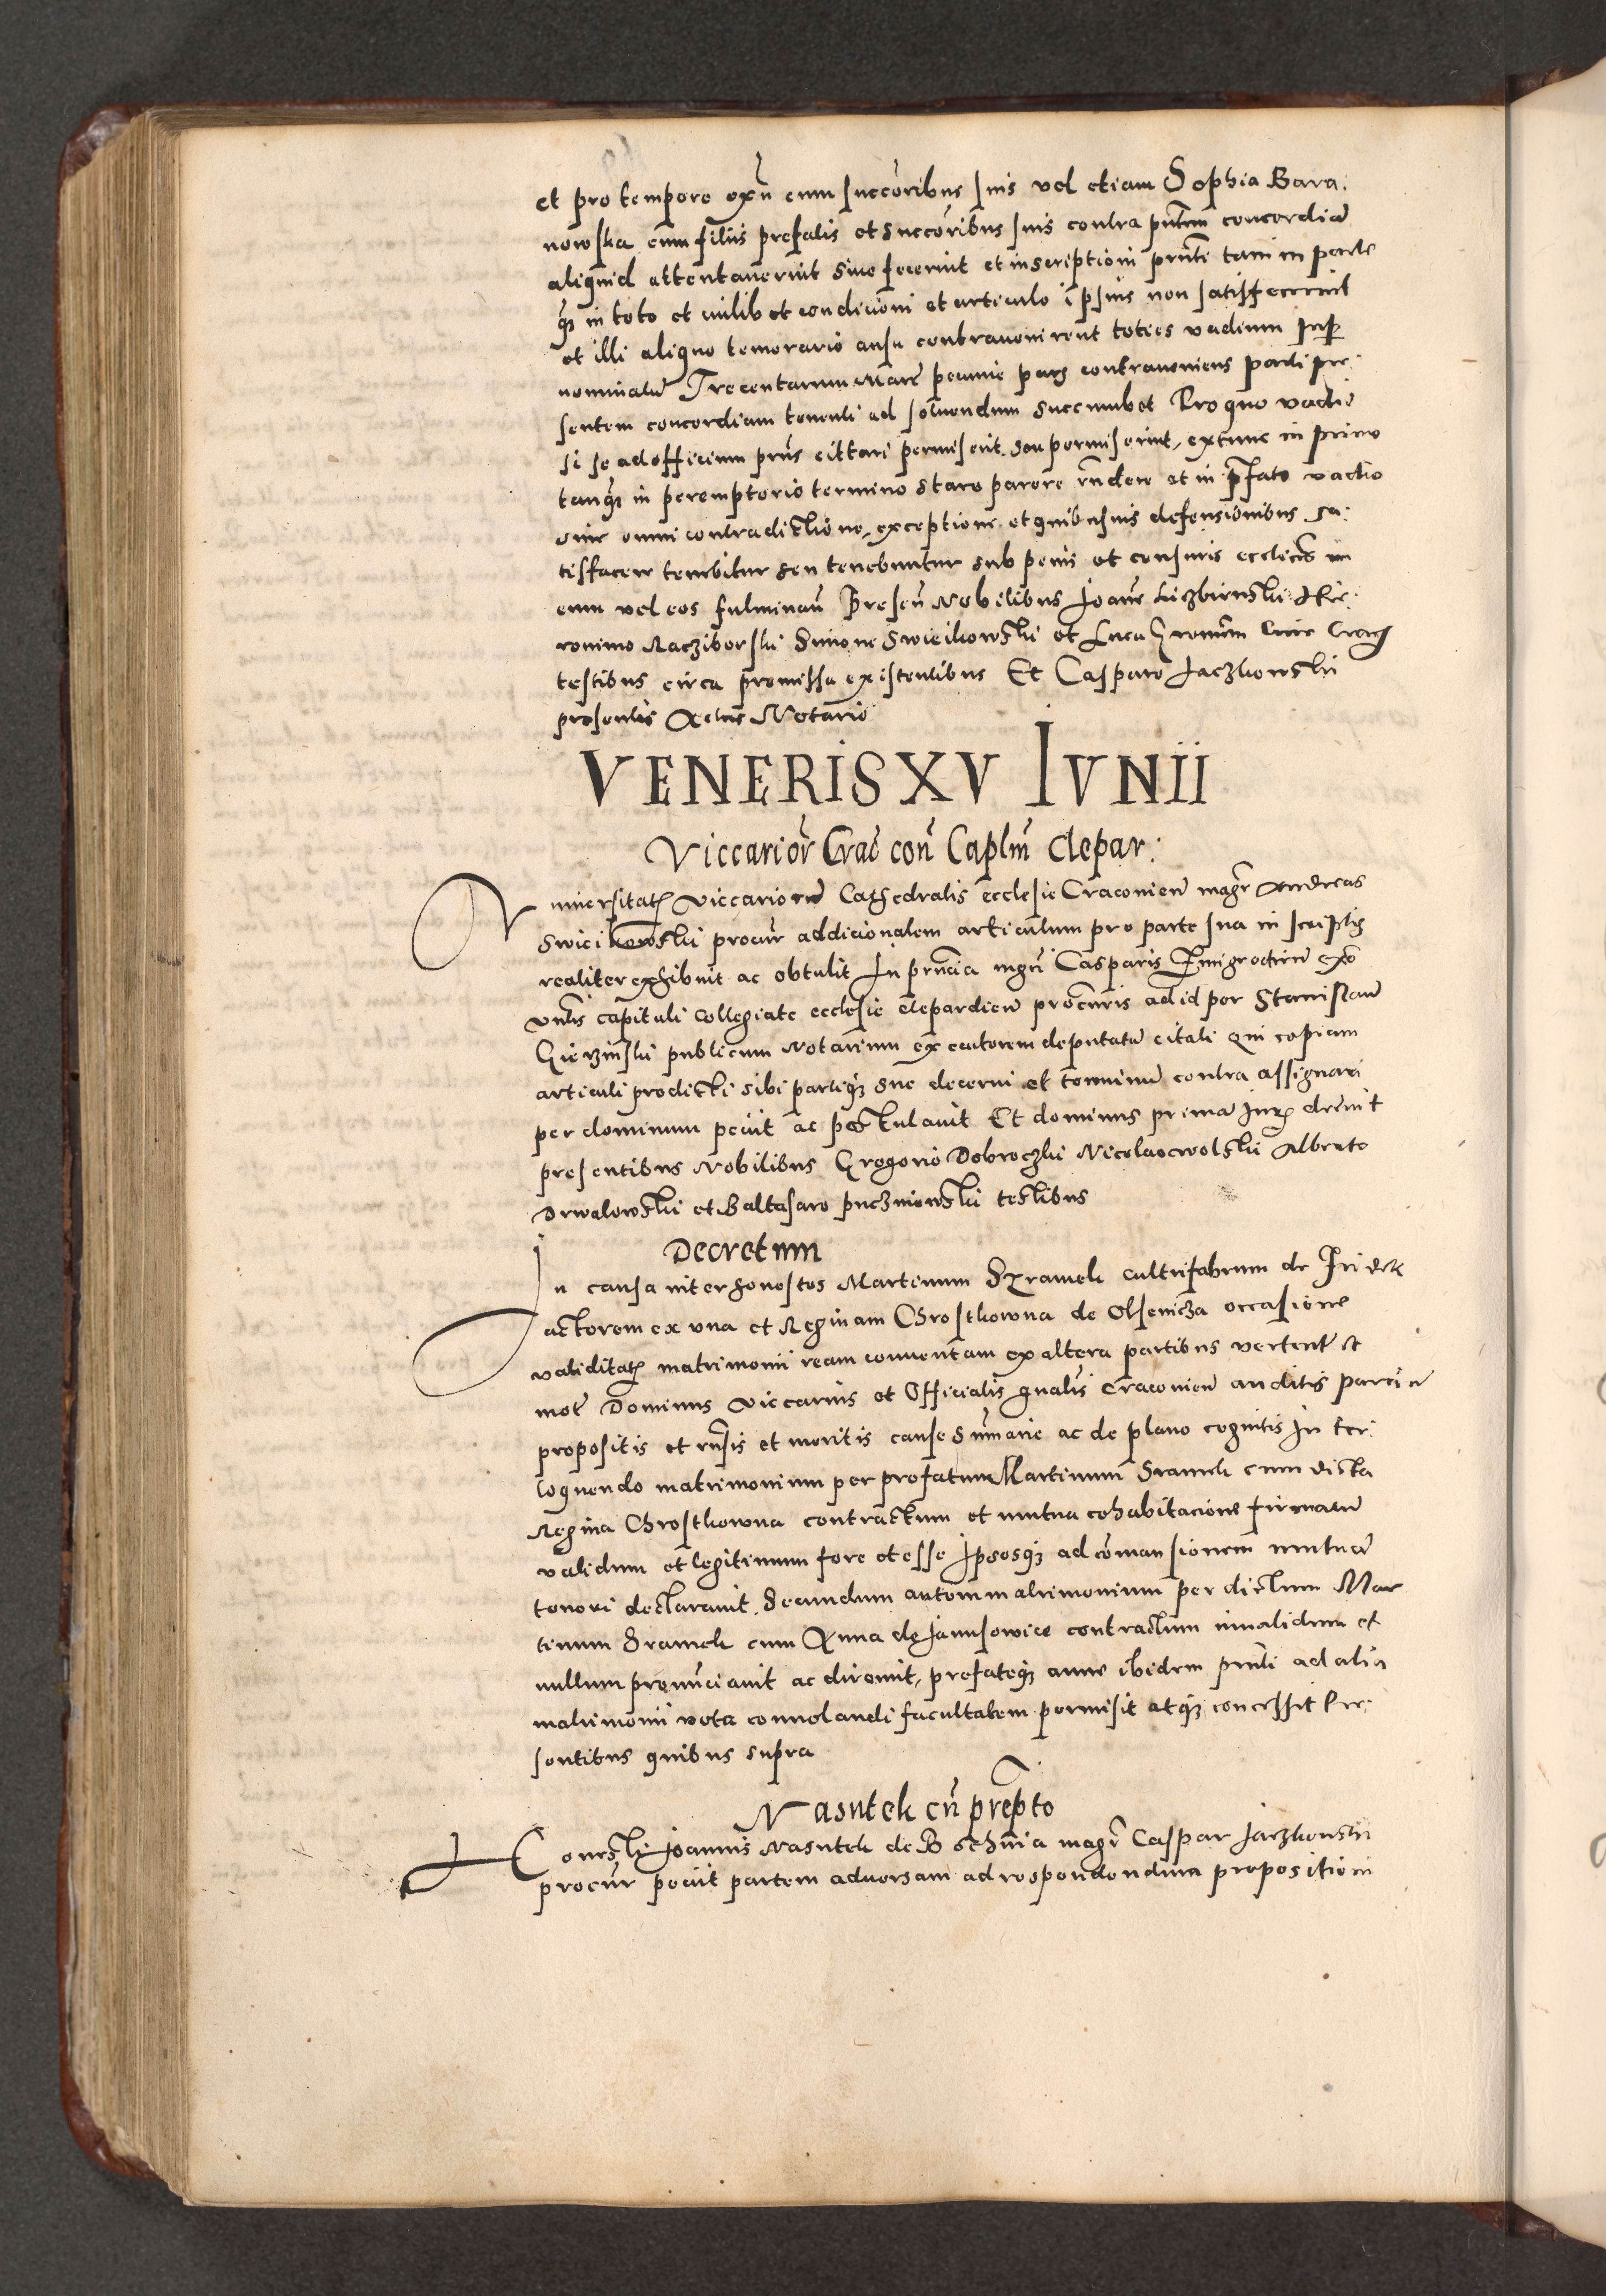 et pro tempore exñ cum succoribus suis vel etiam Sophia Bara:
nowska cum filiis prefatis et succoribus suis contra pñtem concordiã
aliquid attentaverint sive fecerint et inscriptioni prñti tam in parte
q̃ in toto et cuilibet condicioni et articulo ipsius non satisfecerint
et illi aliquo temerario ausu contravenirent toties vadium
nominatũ Trecentarum Marc pecunie pars contraveniens parti pre:
sentem concordiam tenenti ad solvendum succumbet Pro quo vadio
si se ad officium prñs cittari permiserit seu permiserint, extunc in primo
tanq̃ in peremptorio termino stare parere rñdere et in p̃fato vadio
sine omni contradictione, exceptione et quibusvis defensionibus sa:
tisfacere tenebitur seu tenebuntur sub penis et censuris ecclicis in
eum vel eos fulminañ Preseñ Nobilibus Joañe Liczbinski Hie:
ronimo Racziborski Simone Swieikowski et Luca
testibus circa premissa existentibus Et Casparo Jaczkowski
presentis Actus Notario
VENERIS XV IVNII
Viccariorˀ Crac coñ Caplm̃ Clepar:
Vniversitatis Viccariorũ Cathedralis ecclesie Craconieñ magr Andreas
Swieikowski procur addicionalem articulum pro parte sua in scriptis
realiter exhibuit ac obtulit In prñcia mgri Casparis
vñlis capituli Collegiate ecclesie clepardieñ procuris ad id per Stanislaũ
publicum Notarium executorem deputatũ citati Qui copiam
articuli predicti sibi partiq̃ sue decerni et terminũ contra assignari
per dominum peciit ac postulavit Et dominus premissa decrevit
presentibus Nobilibus Gregorio Dobroczki Nicolao Wolski Alberto
Drwalowski et Baltasaro Puczniowski testibus
Decretum
In causa inter honestos Martinum Sramek cultrifabrum de Fridek
actorem ex una et Reginam Chrostkowna de Olsenicza occasione
validitatis matrimonii ream conventam ex altera partibus vertenť et
moť Dominus Viccarius et Officialis gñalis Cracovieñ auditis parciũ
propositis et rñsis et meritis cause sũmarie ac de plano cognitis Inter:
loquendo matrimonium per prefatum Martinum Sramek cum dicta
Regina Chrostkowna contractum et mutua cohabitacione firmatũ
validum et legitimum fore et esse Ipsosq̃ ad com̃ansionem mutuã
teneri declaravit. Secundum autem matrimonium per dictum Mar
tinum Sramek cum Anna de Janusowice contractum invalidum et
nullum pronũciavit ac diremit, prefateq̃ anne ibidem prñti ad alia
matrimonii vota convolandi facultatem permisit atq̃ concessit Pre:
sentibus quibus supra
Nasutek cũ prepto
Honesti Joannis Nasutek de Bochnia magr Caspar Jaczkowski
procur peciit partem adversam ad respondendum proposicioni